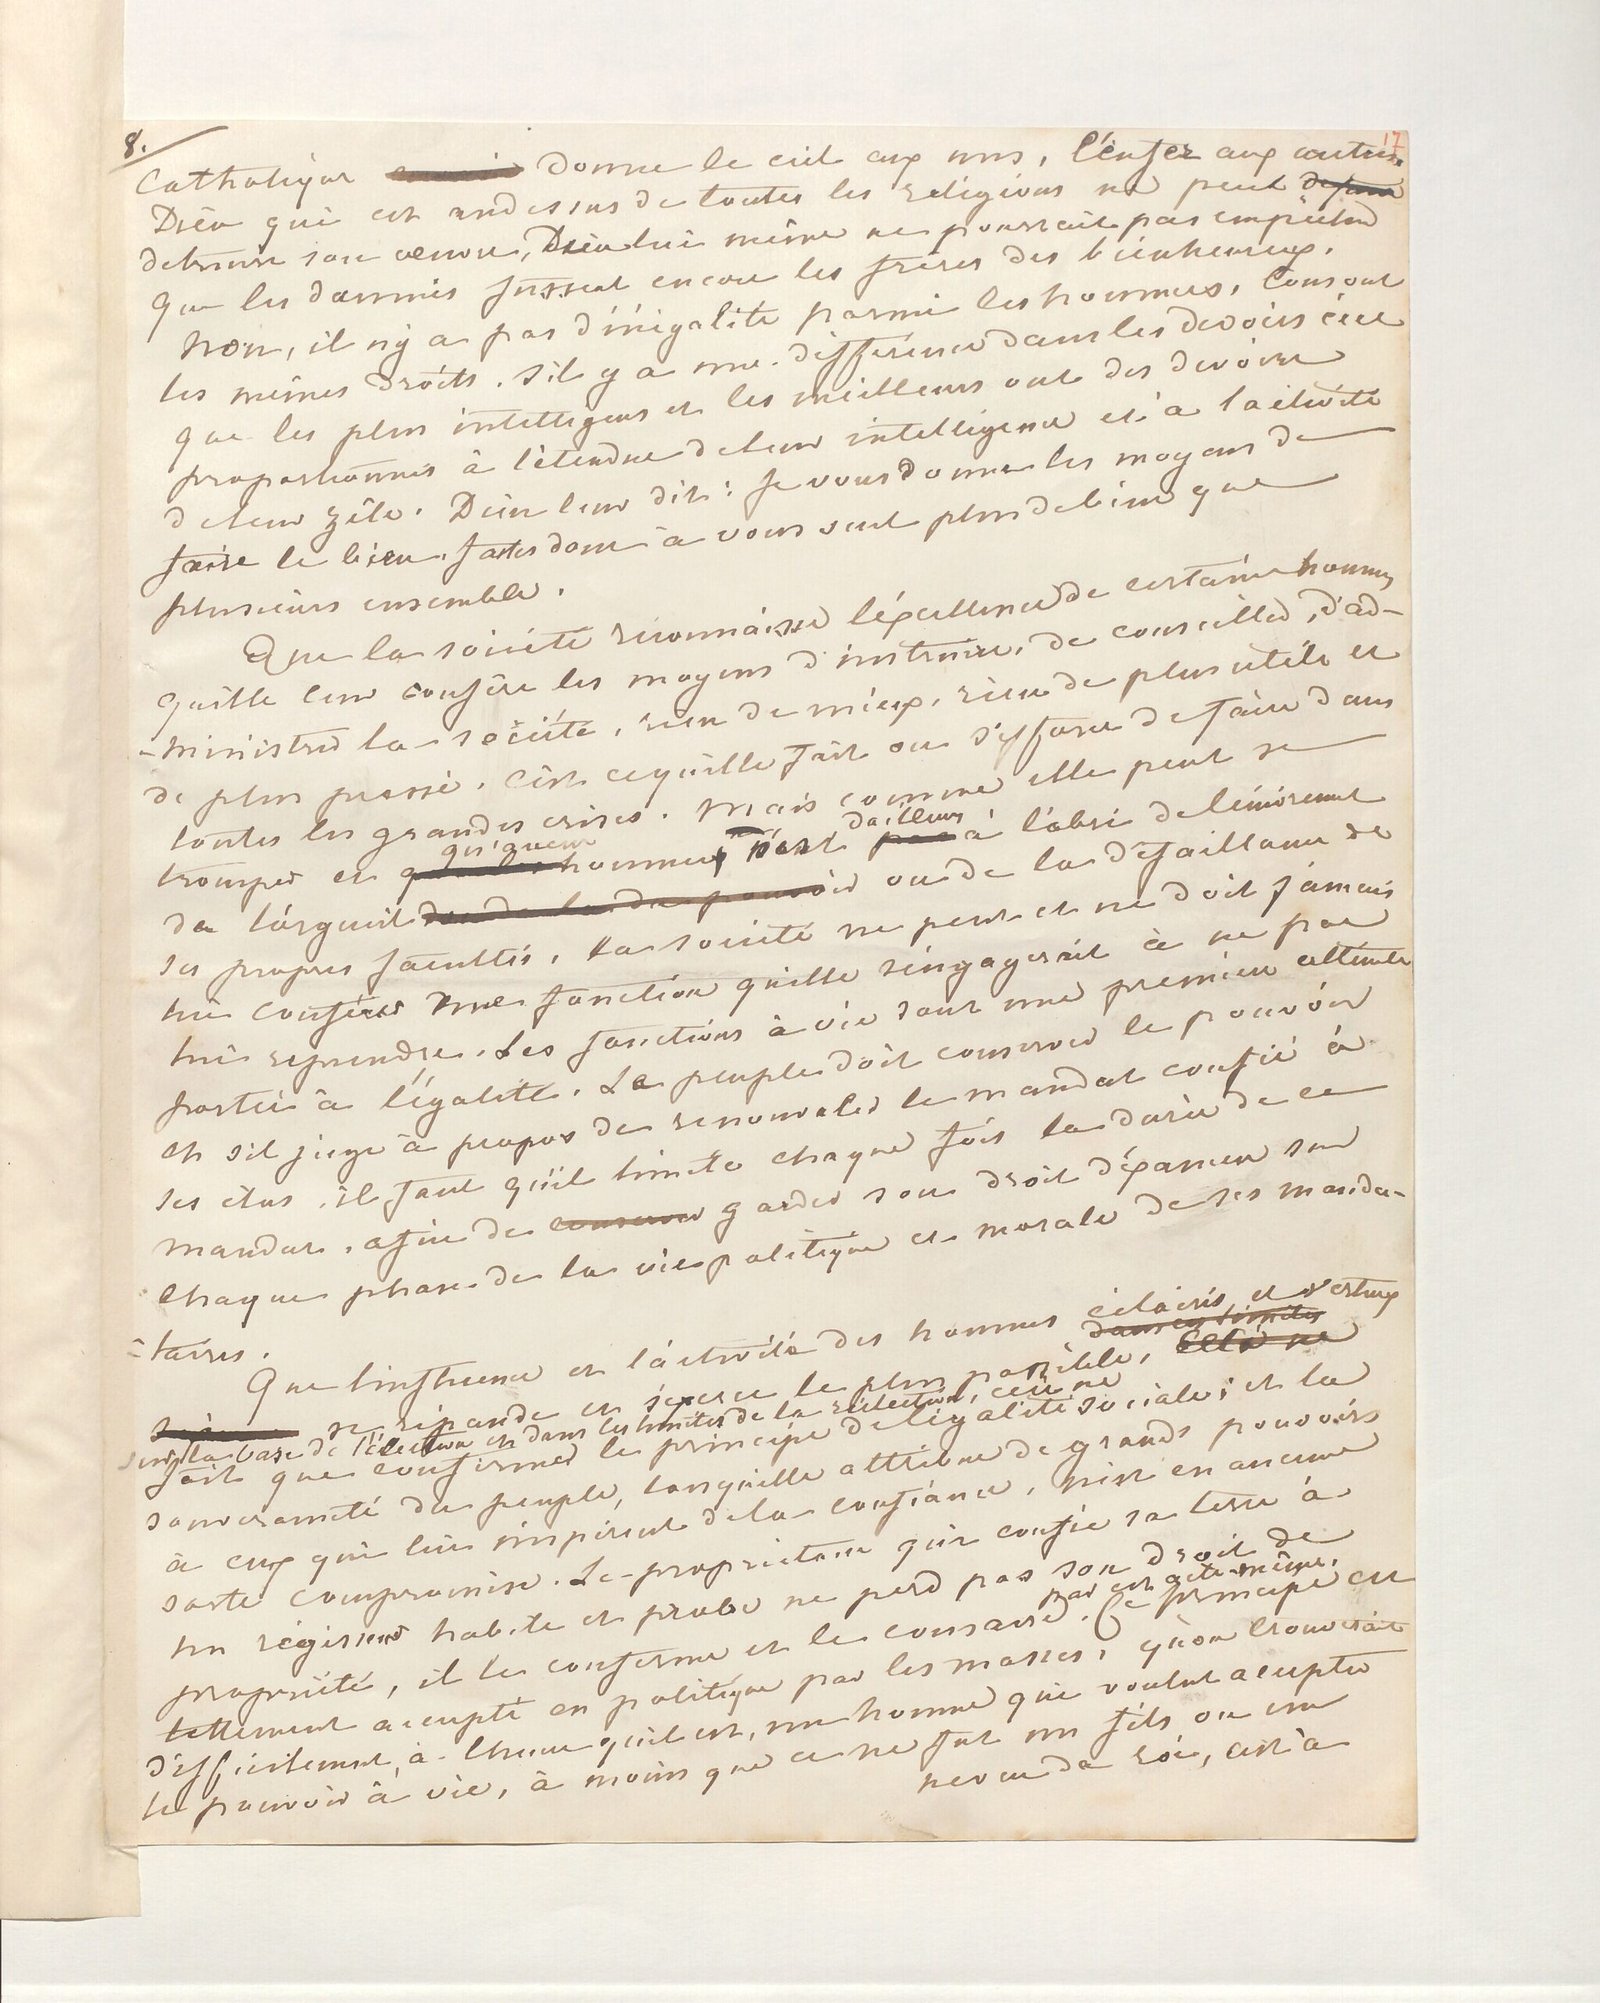 8.
17
Catholique donne le ciel aux uns, l'enfer aux autres.
Dieu qui est audessus de toutes les religions ne peut
detruire son oeuvre, Dieu lui même ne pourrait pas empêcher
que les damnés fussent encore les frères des bienheureux.
Non, il n'y a pas d'inégalité parmi les hommes, tous ont
les mêmes droits. S'il y a une différence dans les devoirs c'est
que les plus intelligens et les meilleurs ont des devoirs
proportionnés à l'étendue de leur intelligence et à l'activité
de leur zèle. Dieu leur dit : Je vous donne les moyens de
faire le bien. faites donc à vous seul plus de bien que
plusieurs ensemble.
Que la société reconnaisse l'éxcellence de certains hommes
qu'elle leur confère les moyens d'instruire, de conseiller, d'ad-
-ministrer la société, rien de mieux, rien de plus utile et
de plus pressé. C'est ce qu'elle fait ou s'efforce de faire dans
toutes les grandes crises. Mais comme elle peut se
tromper et qu'aucun homme n'est d'ailleurs à l'abri de l'énivrement
de l'orgueil ou de la défaillance de
ses propres facultés, la société ne peut et ne doit jamais
lui conférer une fonction qu'elle s'engagerait à ne pas
lui reprendre. Les fonctions à vie sont une première atteinte
portée à l'égalité. Le peuple doit conserver le pouvoir
et s'il juge à propos de renouveler le mandat confié à
ses élus, il faut qu'il limite chaque fois la durée de ce
mandat, afin de conserver garder son droit d'éxamen sur
chaque phase de la vie politique et morale de ses manda-
-taires.
Que l'influence et l'activité des hommes éclairés et vertueux
dans ces limites
se répande et s'exerce le plus possible, Cela ne
sur la base de l'élection et dans les limites de la réélection, cela ne
fait que confirmer le principe de l'égalité sociale; et la
souveraineté du peuple, lorsqu'elle attribue de grands pouvoirs
à ceux qui lui inspirent de la confiance, n'est en aucune
sorte compromise. Le propriétaire qui confie sa terre à
un régisseur habile et probe ne perd pas son droit de
propriété, il le confirme et le consacre par cet acte même. Ce principe est
tellement accepté en politique par les masses, qu'on trouverait
difficilement, à l'heure qu'il est, un homme qui voulut accepter
le pouvoir à vie, à moins que ce ne fut un fils ou un
neveu de roi, c'est à